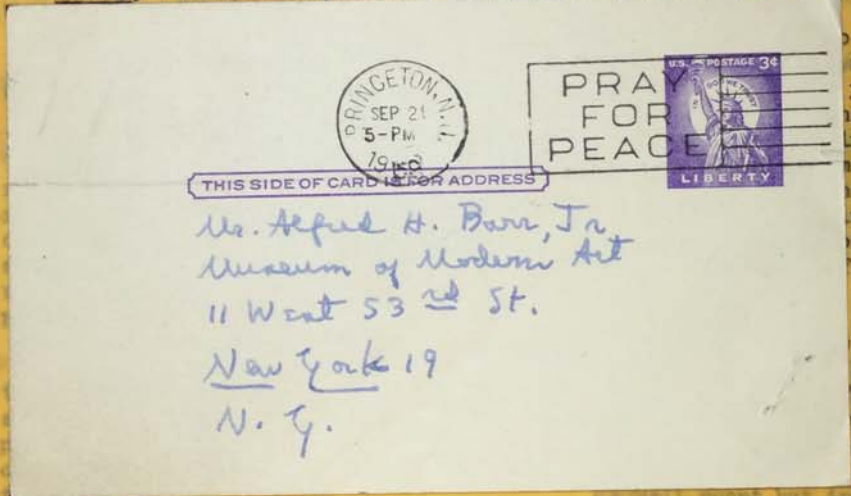 PRINCETON, N.J.
SEP 21
5-PM
19
PRAY
FOR
PEACE
U.S. POSTAGE 3¢
IN GOD WE TRUST
LIBERTY
THIS SIDE OF CARD IS FOR ADDRESS
Mr. Alfred H. Barr, Jr.
Museum of Modern Art
11 West 53rd St.
New York 19
N. Y.